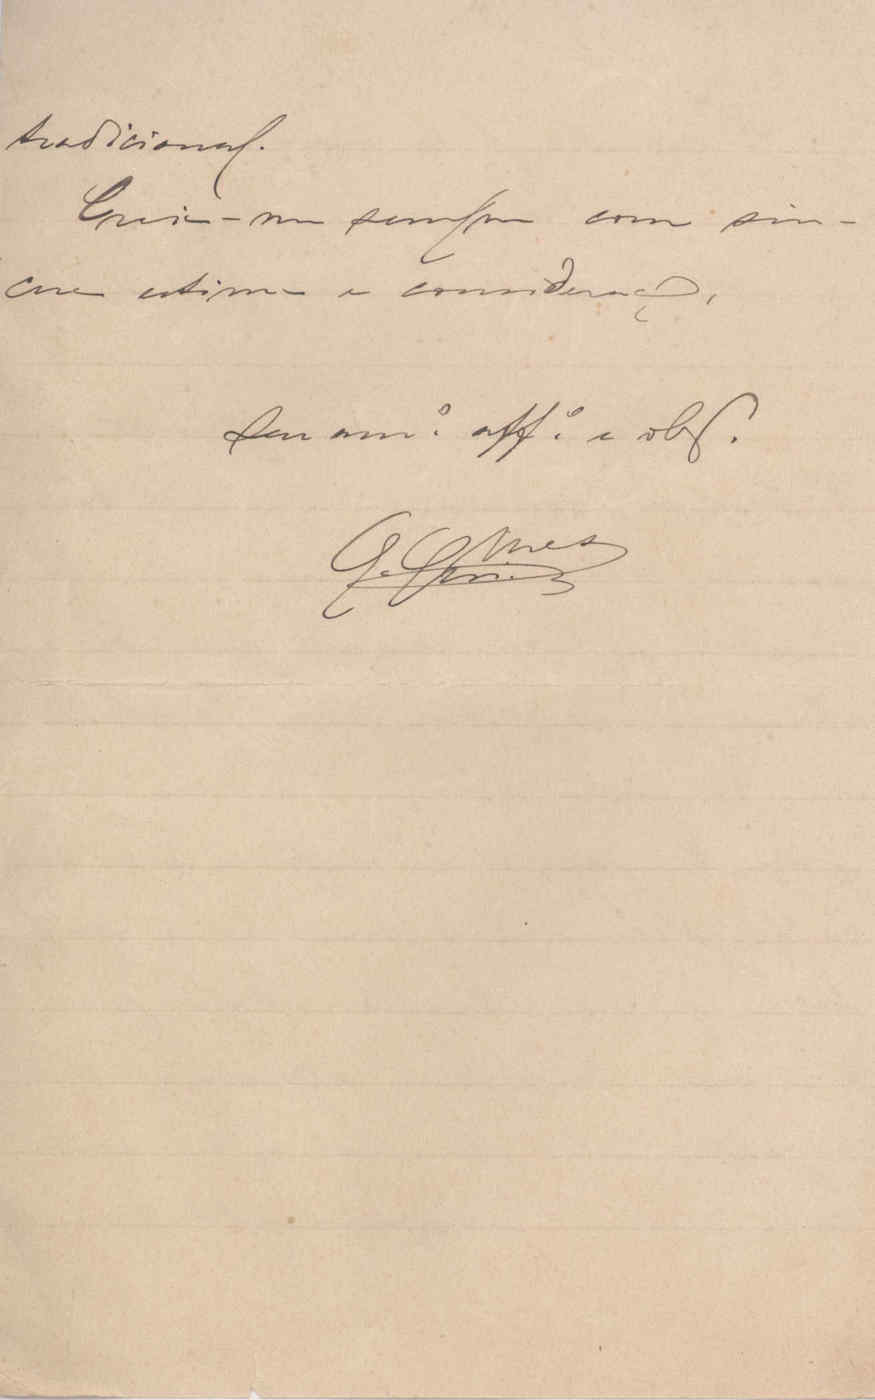 tradicional.
Creia-me sempre com sin-
cera estima e consideração,
seu am.º aff.º e obg.